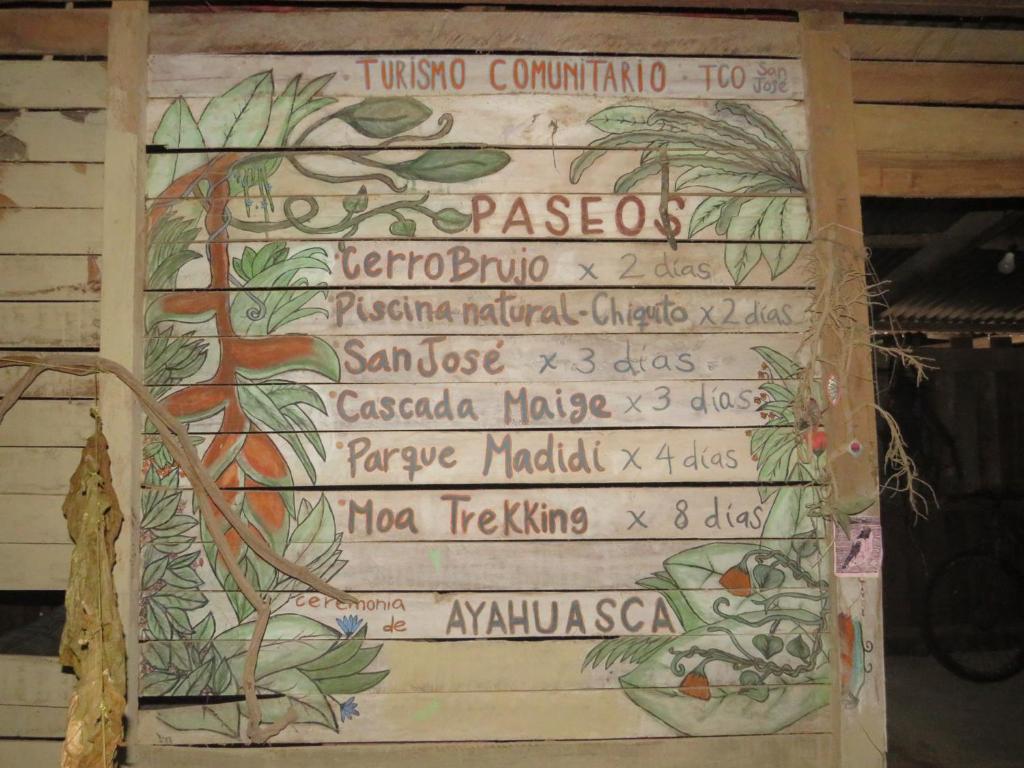 TURISMO COMUNITARIO · TCO San José
PASEOS
·Cerro Brujo x 2 días
·Piscina natural-Chiquito x 2 días
·San José x 3 días
·Cascada Maige x 3 días
·Parque Madidi x 4 días
·Moa Trekking x 8 días
ceremonia de AYAHUASCA